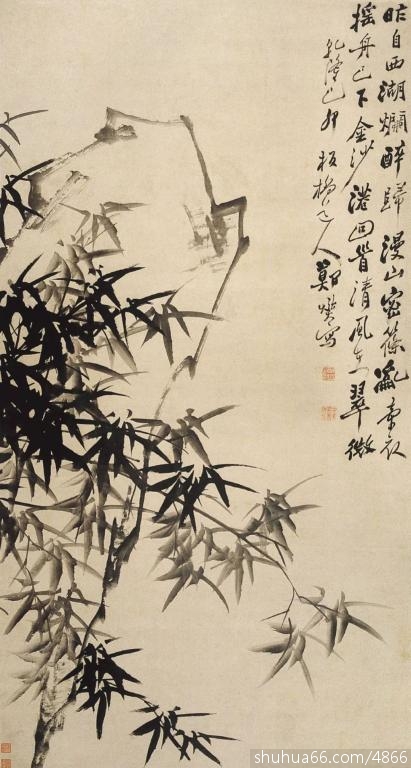 昨自西湖爛醉歸漫山密篠亂牽衣
搖舟已下金沙港回首清風在翠微
乾隆己卯板橋道人鄭燮寫
shuhua66.com/4866